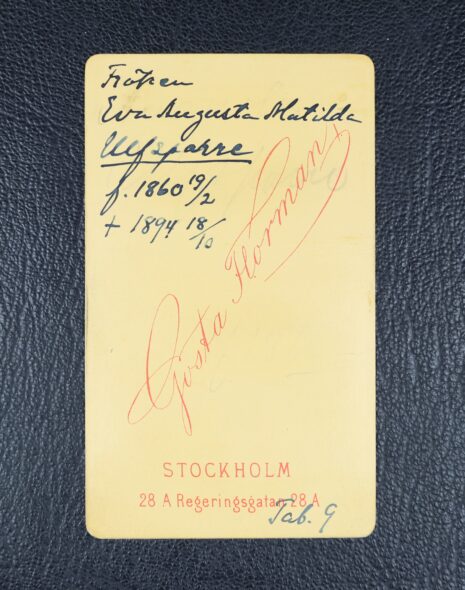 Fröken
Eva Augusta Matilda
Ulfsparre
f. 1860 19/2
+ 1894 18/10
Gösta Florman
STOCKHOLM
28 A Regeringsgatan 28 A
Tab. 9